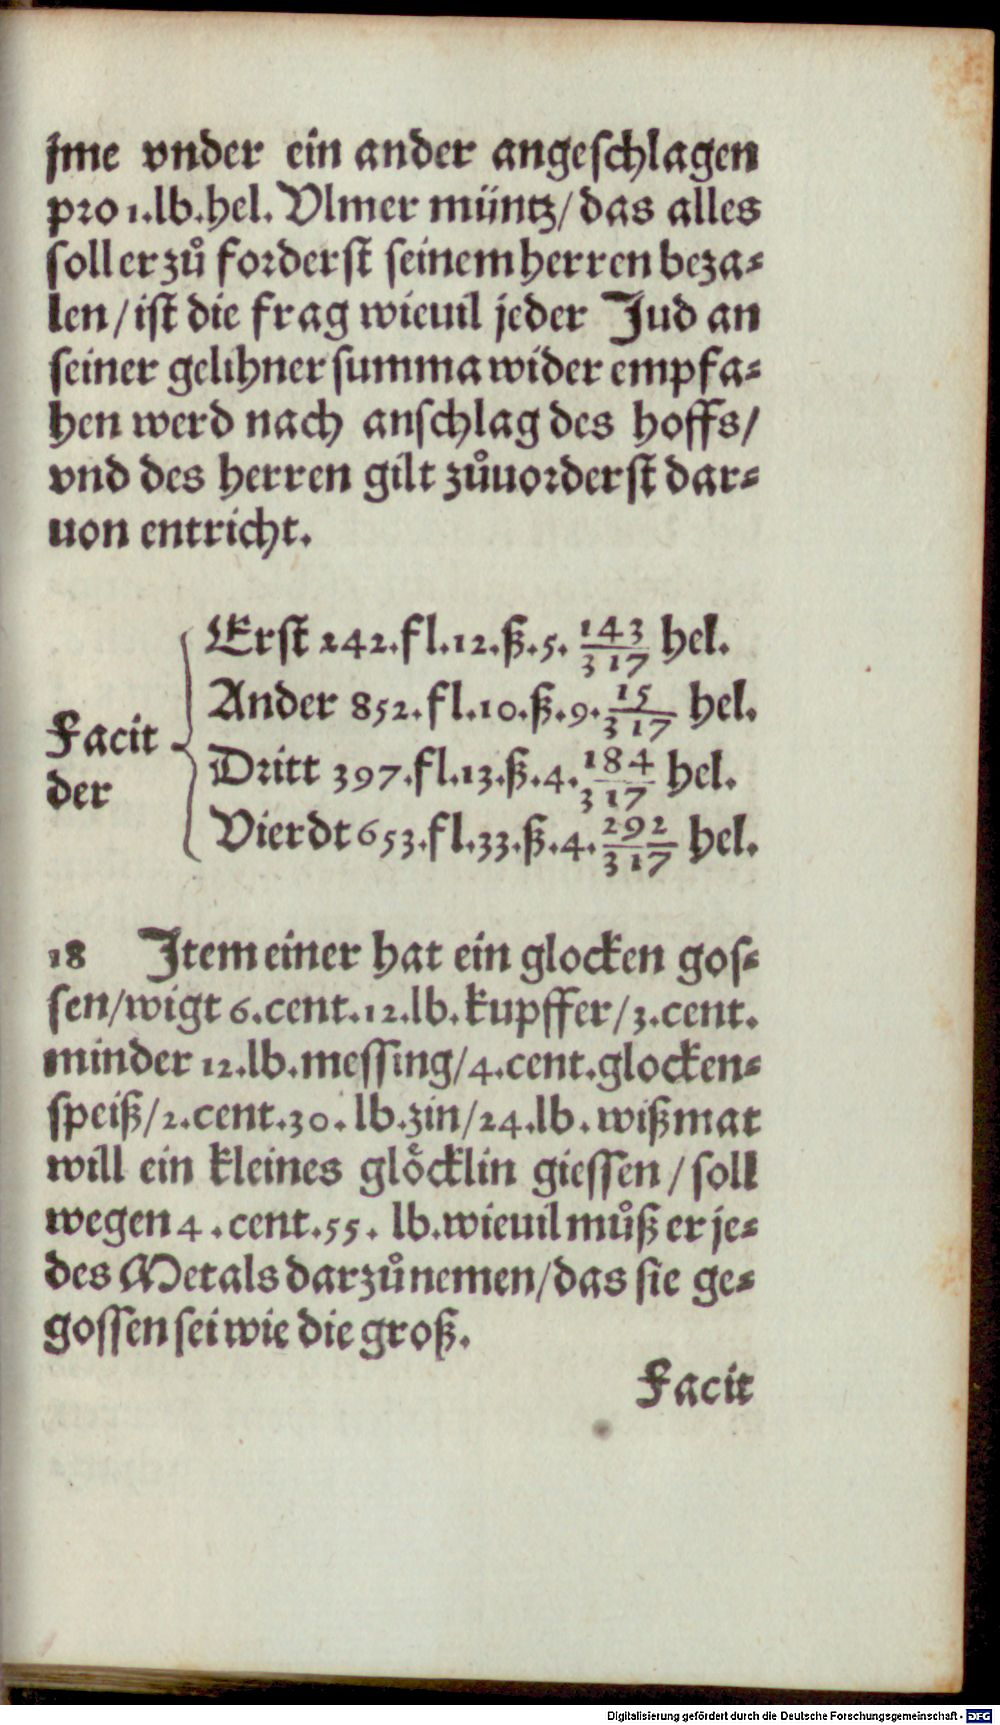 jme vnder ein ander angeschlagen
pro 1.lb.hel. Vlmer müntz/das alles
soll er zů forderst seinem herren beza-
len/ist die frag wieuil jeder Jud an
seiner gelihner summa wider empfa-
hen werd nach anschlag des hoffs/
vnd des herren gilt zůuorderst dar-
uon entricht.
Facit der
Erst 242.fl.12.ß.5. 143/317 hel.
Ander 852.fl.10.ß.9. 15/317 hel.
Dritt 397.fl.13.ß.4. 184/317 hel.
Vierdt 653.fl.33.ß.4. 292/317 hel.
18 Item einer hat ein glocken gos-
sen/wigt 6.cent.12.lb.kupffer/3.cent.
minder 12.lb.messing/4.cent.glocken-
speiß/2.cent.30.lb.zin/24.lb.wißmat
will ein kleines glöcklin giessen/soll
wegen 4.cent.55.lb.wieuil můß er je-
des Metals darzů nemen/das sie ge-
gossen sei wie die groß.
Facit
Digitalisierung gefördert durch die Deutsche Forschungsgemeinschaft - DFG